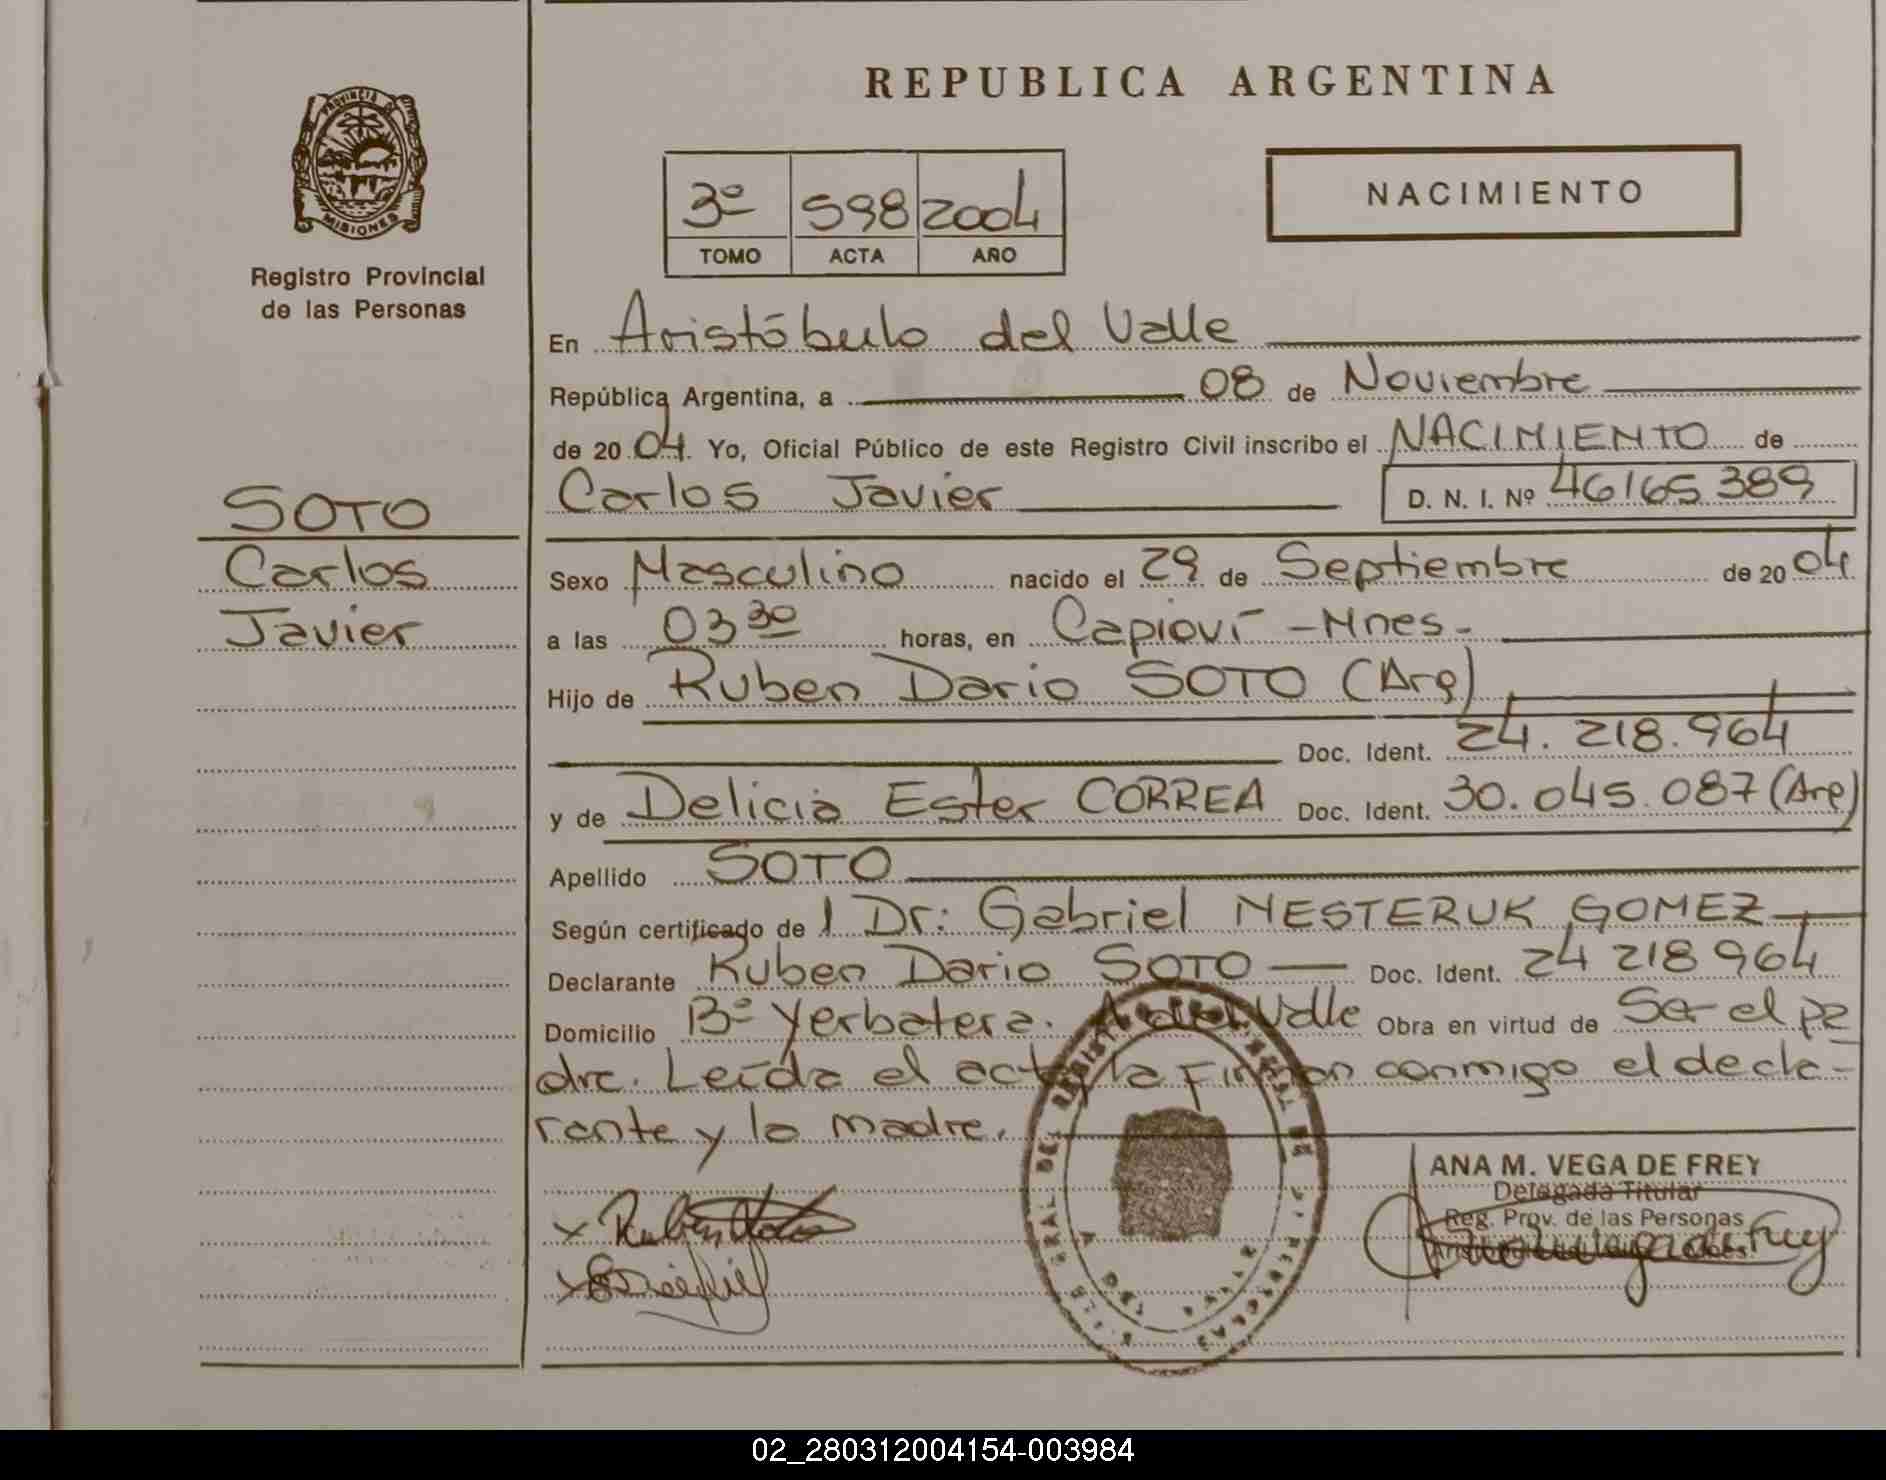 REPUBLICA ARGENTINA
PROVINCIA DE
MISIONES
Registro Provincial
de las Personas
3º 598 2004
TOMO ACTA AÑO
NACIMIENTO
En Aristóbulo del Valle
República Argentina, a 08 de Noviembre
de 20 04. Yo, Oficial Público de este Registro Civil inscribo el NACIMIENTO de
Carlos Javier D. N. I. Nº 46165389
SOTO
Carlos
Javier
Sexo Masculino nacido el 29 de Septiembre de 20 04
a las 03 30 horas, en Capioví - Mnes -
Hijo de Ruben Dario SOTO (Arg)
Doc. Ident. 24.218.964
y de Delicia Ester CORREA Doc. Ident. 30.045.087 (Arg)
Apellido SOTO
Según certificado de l Dr: Gabriel NESTERUK GOMEZ
Declarante Ruben Dario SOTO Doc. Ident. 24 218 964
Domicilio Bº Yerbatera. A. del Valle Obra en virtud de Ser el pa
dre. Leída el acta, la firman conmigo el decla-
rante y la madre.
ANA M. VEGA DE FREY
Delegada Titular
Reg. Prov. de las Personas
x Ruben
02_280312004154-003984